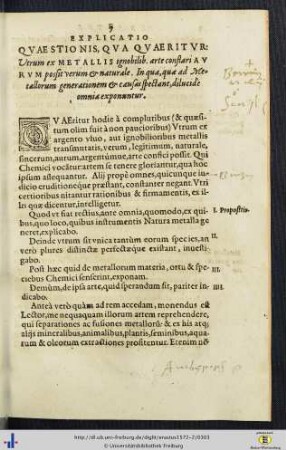 EXPLICATIO
QVAESTIONIS, QVA QVAERITVR:
Vtrum ex METALLIS ignobilib. arte conflari AV
RVM possit verum & naturale. In qua, quæ ad Me-
tallorum generationem & causas spectant, dilucidè
omnia exponuntur.
QVAEritur hodie à compluribus (& quæsi-
tum olim fuit à non paucioribus) Vtrum ex
argento viuo, aut ignobilioribus metallis
transmutatis, verum, legitimum, naturale,
syncerum, aurum, argentúmue, arte confici possit. Qui
Chemici vocãtur: artem se tenere gloriãtur, qua hoc
ipsum assequantur. Alij propè omnes, quicunque iu-
dicio eruditionéque præstant, constanter negant. Vtri
certioribus nitantur rationibus & firmamentis, ex il-
lis quæ dicentur, intelligetur.
Quod vt fiat rectius, ante omnia, quomodo, ex qui-
bus, quo loco, quibus instrumentis Natura metalla ge
neret, explicabo.
I. Propositio.
Deinde vtrum sit vnica tantùm eorum species, an
verò plures distinctæ perfectæque existant, inuesti-
gabo.
II.
Post hæc quid de metallorum materia, ortu & spe-
ciebus Chemici senserint, exponam.
III.
Demùm, de ipsa arte, quid sperandum sit, pariter in-
dicabo.
IIII.
Anteà verò quàm ad rem accedam, monendus est
Lector, me nequaquam illorum artem reprehendere,
qui separationes ac fusiones metallorũ: & ex his atq;
alijs mineralibus, animalibus, plantis, seminibus, aqua-
rum & oleorum extractiones profitentur. Etenim nõ
http://dl.ub.uni-freiburg.de/diglit/erastus1572-2/0303
© Universitätsbibliothek Freiburg